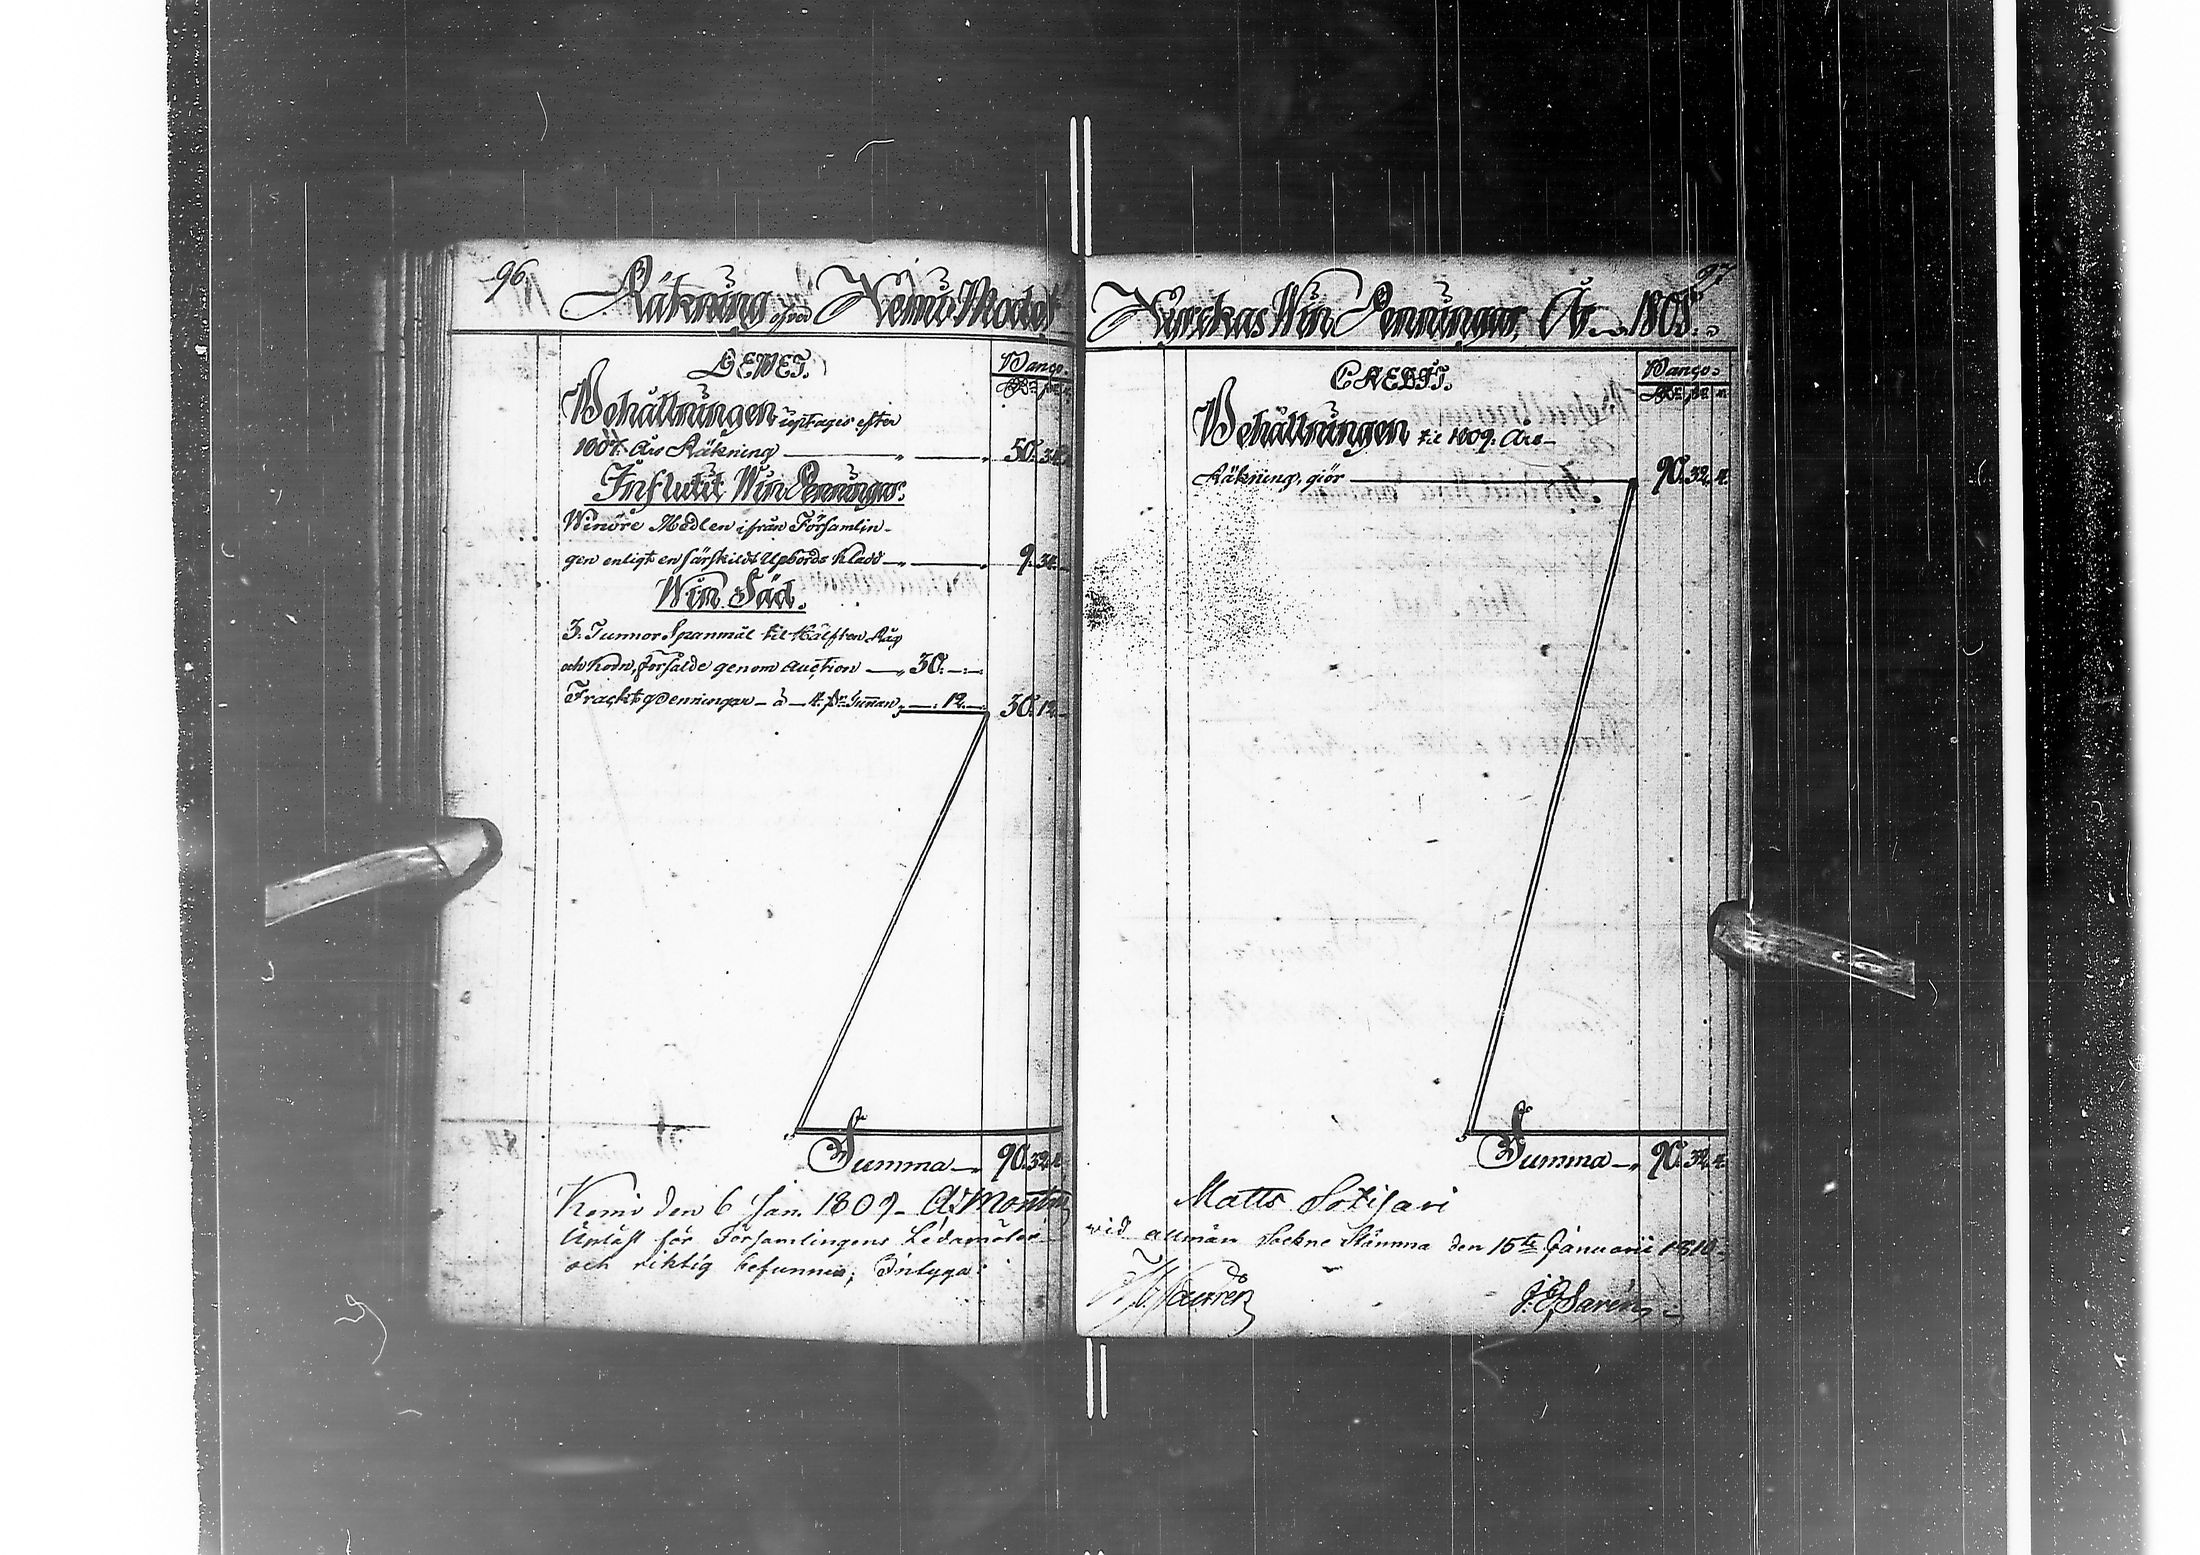 96
Räkning öfver Kemi Moder
DEBET.
Banco.
Behållningen uptages efter
1807. Års Räkning 50. 34.
Influtit Win Penningar.
Winöre Medlen ifrån Församlin-
gen enligt en särskildt Upbörds Kladd 9. 34.
Win Säd.
3. Tunnor Spanmål til Hälften Råg
och Korn, försålde genom Auction 30.
Frackt Penningar à 4. pr Tunnan 12. 30. 12.
Summa 90. 32. 4.
Kemi den 6 Jan. 1809
Upläst för Församlingens Ledamöter
och riktig befunnen; Intyga:
97
Kyrckas Win Penningar, År 1808.
CREDIT.
Banco.
Behållningen til 1809. Års
Räkning, giör 90. 32. 4.
Summa 90. 32. 4.
Matts Sotisari
vid allmän Sockne Stämma den 15de Januarii 1810